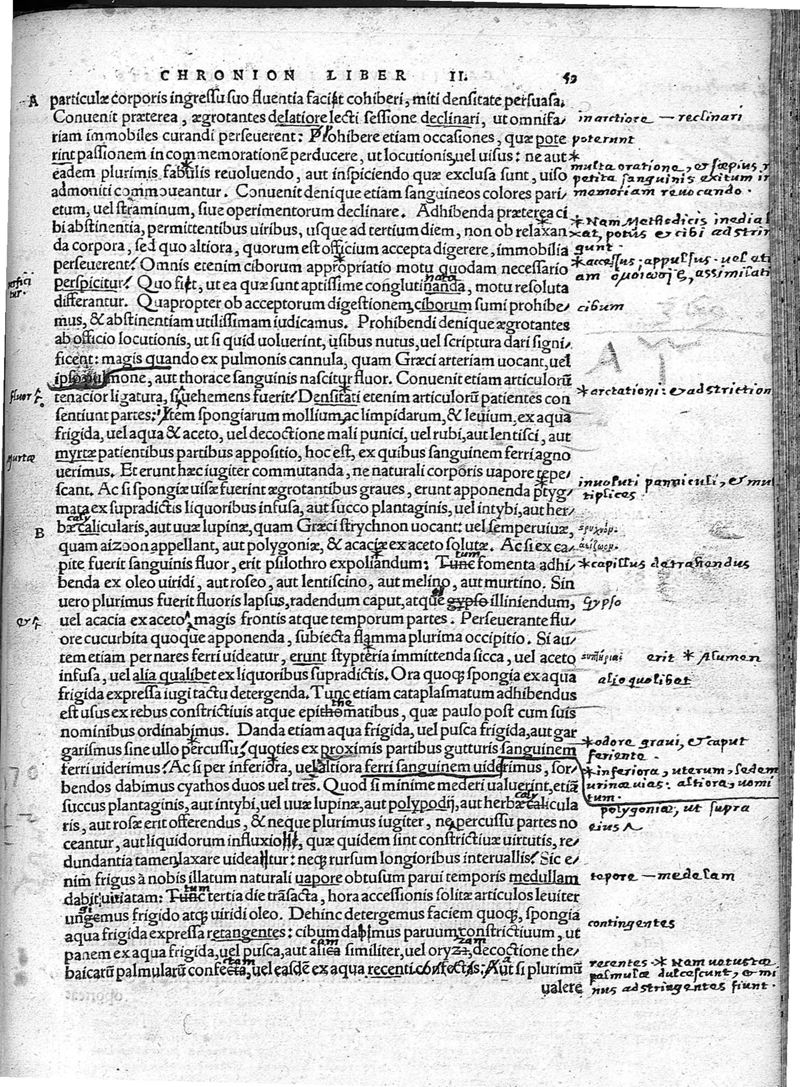 CHRONION LIBER II. 53
A particulæ corporis ingressu suo fluentia faciat cohiberi, miti densitate persuasa.
Conuenit præterea, ægrotantes delatiore lecti sessione declinari, ut omnifa- in arctiore — reclinari
riam immobiles curandi perseuerent: Prohibere etiam occasiones, quæ pote poterunt
rint passionem in commemorationē perducere, ut locutionis, uel uisus: ne aut *
eadem plurimis fabulis reuoluendo, aut inspiciendo quæ exclusa sunt, uiso multa oratione, et sæpius
admoniti commoueantur. Conuenit denique etiam sanguineos colores pari- petita sanguinis exitum in
etum, uel straminum, siue operimentorum declinare. Adhibenda præterea ci memoriam reuocando.
bi abstinentia, permittentibus uiribus, usque ad tertium diem, non ob relaxan * Nam Methodicis inedia
da corpora, sed quo altiora, quorum est officium accepta digerere, immobilia xat, potus et cibi adstrin
perseuerent: Omnis etenim ciborum appropriatio motu quodam necessario gunt.
perspicitur: Quo fit, ut ea quæ sunt aptissime conglutinanda, motu resoluta * accessus; appulsus. uel
differantur. Quapropter ob acceptorum digestionem, ciborum sumi prohibe- cibum
mus, & abstinentiam utilissimam iudicamus. Prohibendi denique ægrotantes
ab officio locutionis, ut si quid uoluerint, usibus nutus, uel scriptura dari signi
ficent: magis quando ex pulmonis cannula, quam Græci arteriam uocant, uel
ipso pulmone, aut thorace sanguinis nascitur fluor. Conuenit etiam articulorū
tenacior ligatura, si uehemens fuerit: Densitati etenim articulorū patientes con * arctationi: et adstriction
sentiunt partes: Item spongiarum mollium, ac limpidarum, & leuium, ex aqua
frigida, uel aqua & aceto, uel decoctione mali punici, uel rubi, aut lentisci, aut
myrtæ patientibus partibus appositio, hoc est, ex quibus sanguinem ferri agno
uerimus. Et erunt hæc iugiter commutanda, ne naturali corporis uapore tepe-
scant. Ac si spongiæ uisæ fuerint ægrotantibus graues, erunt apponenda ptyg- inuoluti panniculi, et mul
mata ex supradictis liquoribus infusa, aut succo plantaginis, uel intybi, aut her- tiplices.
bæ calicularis, aut uuæ lupinæ, quam Græci strychnon uocant: uel semperuiuæ,
B quam aizoon appellant, aut polygoniæ, & acaciæ ex aceto solutæ. Ac si ex ca-
pite fuerit sanguinis fluor, erit psilothro expoliandum: Tunc fomenta adhi- * capillus detrahendus
benda ex oleo uiridi, aut roseo, aut lentiscino, aut melino, aut murtino. Sin
uero plurimus fuerit fluoris lapsus, radendum caput, atque gypso illiniendum, Gypso
uel acacia ex aceto, magis frontis atque temporum partes. Perseuerante flu-
ore cucurbita quoque apponenda, subiecta flamma plurima occipitio. Si au-
tem etiam per nares ferri uideatur, erunt stypteria immittenda sicca, uel aceto erit * Alumen
infusa, uel alia qualibet ex liquoribus supradictis. Ora quoq; spongia ex aqua alio quolibet
frigida expressa iugi tactu detergenda. Tunc etiam cataplasmatum adhibendus
est usus ex rebus constrictiuis atque epithematibus, quæ paulo post cum suis
nominibus ordinabimus. Danda etiam aqua frigida, uel pusca frigida, aut gar
garismus sine ullo percussu: quoties ex proximis partibus gutturis sanguinem * odore graui, et caput
ferri uiderimus: Ac si per inferiora, uel altiora ferri sanguinem uiderimus, sor- feriente.
bendos dabimus cyathos duos uel tres. Quod si minime mederi ualuerint, etiā * inferiora, uterum, sedem
succus plantaginis, aut intybi, uel uuæ lupinæ, aut polypodij, aut herbæ calicula urinæ uias: altiora, uomi
ris, aut rosæ erit offerendus, & neque plurimus iugiter, ne percussu partes no tum.
ceantur, aut liquidorum influxio, quæ quidem sint constrictiuæ uirtutis, re- polygoniæ, ut supra
dundantia tamen laxare uideantur: neq; rursum longioribus interuallis: Sic e- eius
nim frigus à nobis illatum naturali uapore obtusum parui temporis medullam tepore — medelam
dabit uitiatam: Tunc tertia die trāsacta, hora accessionis solitæ articulos leuiter
ungemus frigido atq; uiridi oleo. Dehinc detergemus faciem quoq;, spongia
aqua frigida expressa retangentes: cibum dabimus paruum constrictiuum, ut contingentes
panem ex aqua frigida, uel pusca, aut alica similiter, uel oryza, decoctione the-
baicarū palmularū confecta, uel easdē ex aqua recenti confectas: Aut si plurimū recentes * Nam uetustæ
ualere palmulæ dulcescunt, et mi
nus adstringentes fiunt.